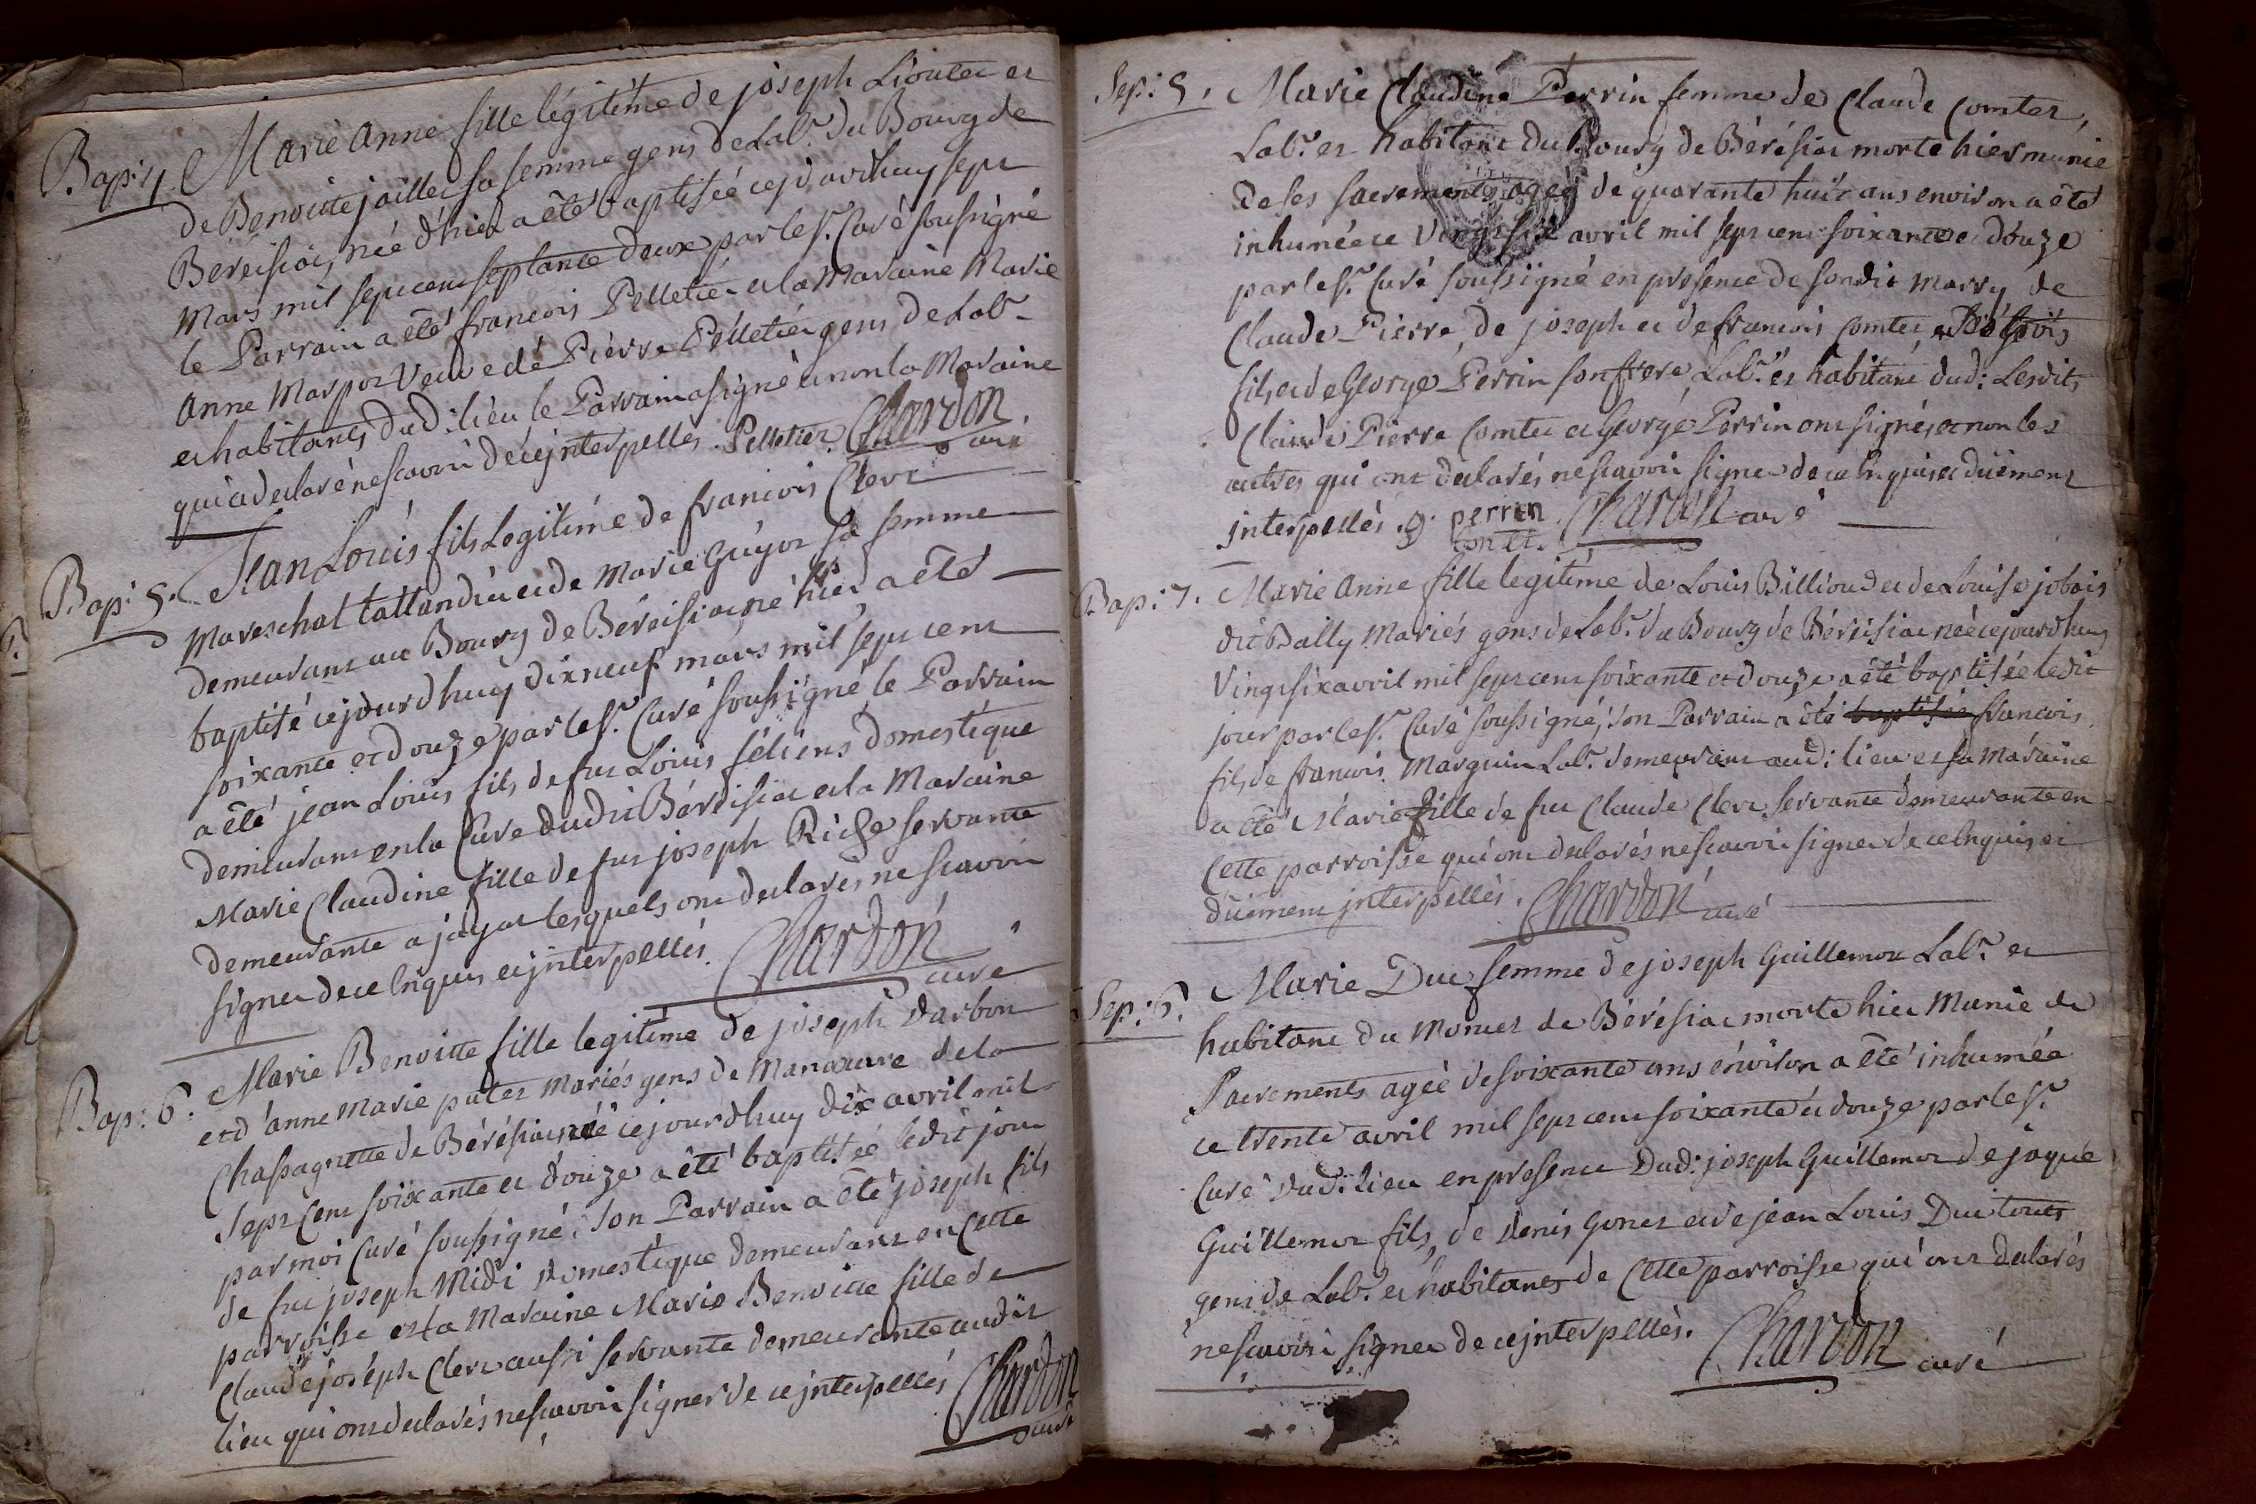 Bap: 4. Marie Anne fille légitime de joseph Lioulei et
de Benoitte jaillet sa femme gens de Lab.r du Bourg de
Béréisiai, née d'hier a été baptisée cejourdhuy sept
Mars mil sept cent septante deux par le s.r Curé soussigné
le Parrain a été francois Pelletier et la Maraine Marie
Anne Marpoz Veuve de Pierre Pelletier gens de Lab.r
et habitants dud: lieu le Parrain a signé et non la Maraine
qui a declaré ne scavoir de ce jnterpelles. Pelletier Chardon
curé
Bap: 5. Jean Louis fils Legitime de francois Clerc
Mareschal tallandier et de Marie Guyot sa femme
demeurant au Bourg de Béréisiat né hier a été
baptisé cejourdhuy dixneuf mars mil sept cent
soixante et douze par le s.r Curé soussigné le Parrain
a été jean Louis fils de fut Louis féliens domestique
demeurant en la Cure dudit Béréisiat et la Maraine
Marie Claudine fille de fut joseph Riche servante
demeurante a jayat lesquels ont declarés ne scavoir
signer de ce Enquis et jnterpellés. Chardon
curé
Bap: 6. Marie Benoitte fille legitime de joseph Darbon
et d'anne Marie putez Mariés gens de Manœuvre de la
Chassagnette de Bérésiat née cejourdhuy dix avril mil
Sept Cent soixante et douze a été baptisée ledit jour
par moi Curé soussigné. Son Parrain a été joseph fils
de fut joseph Midi domestique demeurant en Cette
parroisse et la Maraine Marie Benoitte fille de
Claude joséph Clerc aussi servante demeurante audit
lieu qui ont declarés ne scavoir signer de ce jnterpellés Chardon
curé
Sep: 5. Marie Claudine Perrin femme de Claude Comtet,
Lab.r et habitant du Bourg de Bérésiat morte hier munie
de ses sacrements agée de quarante huit ans environ a été
inhumée ce Vingt six avril mil sept cent soixante et douze
par le s.r Curé soussigné en presence de sondit Marry de
Claude Pierre, de joseph et de francois Comtet, ses trois
fils et de George Perrin son frere Lab.rs et habitant dud: Lesdits
Claude Pierre Comtet et George Perrin ont signés et non les
autres qui ont declarés ne scavoir signer de ce Enquis et duement
interpellés. g. perrin Chardon curé
Comtet.
Bap: 7. Marie Anne fille legitime de Louis Billioud et de Louise jobais
dit Bailly Mariés gens de Lab.r du Bourg de Béréisiat née cejourdhuy
Vingt six avril mil sept cent soixante et douze a été baptisée ledit
jour par le s.r Curé soussigné; Son Parrain a été baptisée francois
fils de francois Marguin Lab.r demeurant aud: lieu et sa Maraine
a été Marie fille de fut Claude Clerc servante demeurante en
Cette parroisse qui ont declarés ne scavoir signer de ce Enquis et
duement jnterpellés. Chardon curé
Sep: 6. Marie Duc femme de joseph Guillemot Lab.r et
habitant du Moncet de Bérésiat morte hier Munie de
Sacrements agée de soixante ans environ a été inhumée
ce trente avril mil sept cent soixante et douze par le s.r
Curé dud: lieu en presence dud: joseph Guillemot de jaque
Guillemot fils, de denis Gonet et de jean Louis Duc touts
gens de Lab.r et habitants de Cette parroisse qui ont declarés
ne scavoir signer de ce jnterpellés. Chardon curé